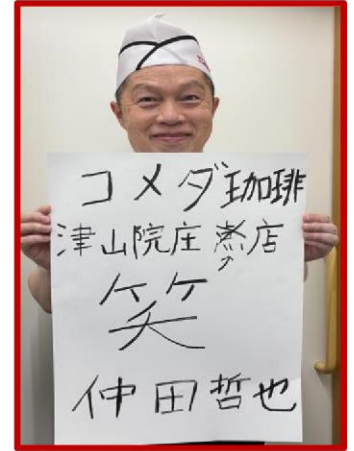 コメダ珈琲
津山院庄店
笑
仲田哲也